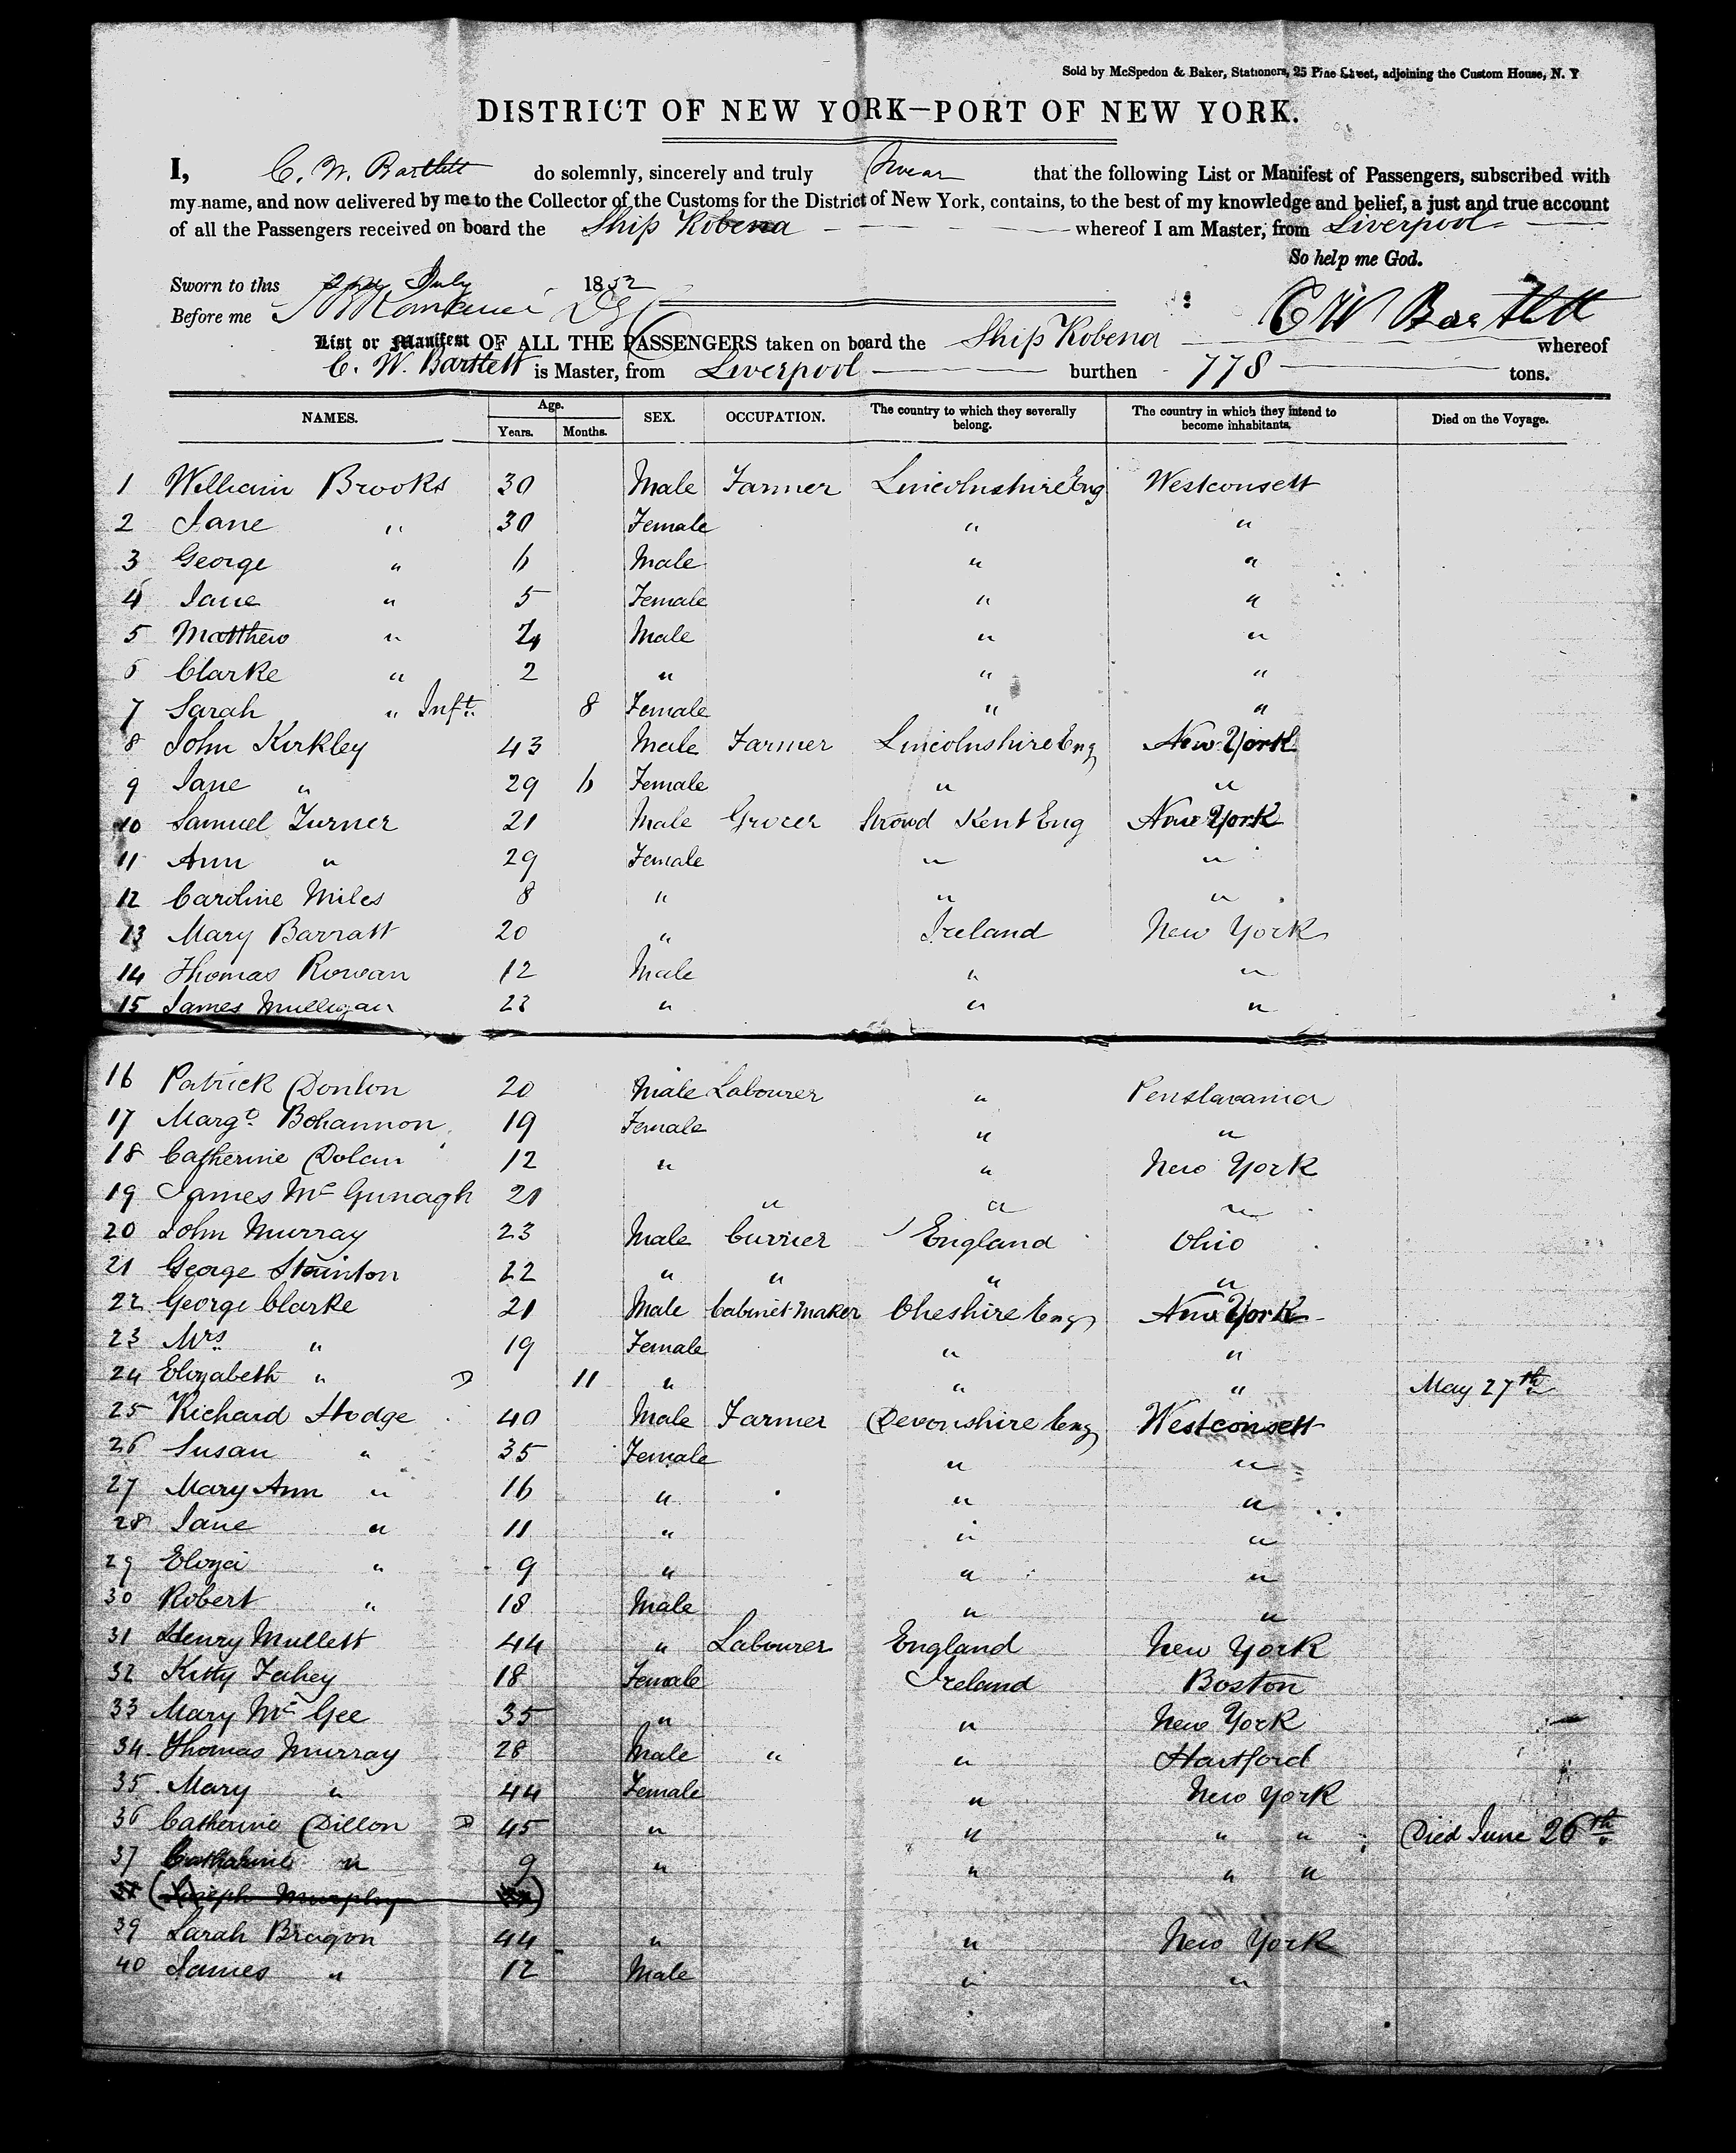 Sold by McSpedon & Baker, Stationers, 25 Pine Street, adjoining the Custom House, N. Y
DISTRICT OF NEW YORK—PORT OF NEW YORK.
I, C. W. Bartlett do solemnly, sincerely and truly Swear that the following List or Manifest of Passengers, subscribed with
my name, and now delivered by me to the Collector of the Customs for the District of New York, contains, to the best of my knowledge and belief, a just and true account
of all the Passengers received on board the Ship Robena whereof I am Master, from Liverpool
So help me God.
Sworn to this July 1852
Before me
C W Bartlett
List or Manifest OF ALL THE PASSENGERS taken on board the Ship Robena whereof
C. W. Bartlett is Master, from Liverpool burthen 778 tons.
NAMES. Age. Years. Months. SEX. OCCUPATION. The country to which they severally belong. The country in which they intend to become inhabitants. Died on the Voyage.
1 William Brooks 30 Male Farmer Lincolnshire Eng Westconsett
2 Jane " 30 Female " "
3 George " 6 Male " "
4 Jane " 5 Female " "
5 Matthew " 4 Male " "
6 Clarke " 2 " " "
7 Sarah " Inft. 8 Female " "
8 John Kirkley 43 Male Farmer Lincolnshire Eng New York
9 Jane " 29 6 Female " "
10 Samuel Turner 21 Male Grocer Strowd Kent Eng New York
11 Ann " 29 Female " "
12 Caroline Miles 8 " " "
13 Mary Barratt 20 " Ireland New York
14 Thomas Rowan 12 Male " "
15 James Mulligan 23 " " "
16 Patrick Donlon 20 Male Labourer " Penslavania
17 Margt. Bohannon 19 Female " "
18 Catherine Dolan 12 " " New York
19 James Mc Gunagh 21 " " "
20 John Murray 23 Male Currier England Ohio
21 George Stainton 22 " " " "
22 George Clarke 21 Male Cabinet Maker Cheshire Eng New York
23 Mrs. " 19 Female " "
24 Elizabeth " D 11 " " " May 27th
25 Richard Hodge 40 Male Farmer Devonshire Eng Westconsett
26 Susan " 35 Female " "
27 Mary Ann " 16 " " "
28 Jane " 11 " " "
29 Eliza " 9 " " "
30 Robert " 18 Male " "
31 Henry Mullett 44 " Labourer England New York
32 Kitty Fahey 18 Female Ireland Boston
33 Mary Mc Gee 35 " " New York
34 Thomas Murray 28 Male " " Hartford
35 Mary " 44 Female " New York
36 Catherine Dillon D 45 " " " " Died June 26th
37 Catharine " 9 " " " "
38 (Joseph Murphy )
39 Sarah Bragon 44 " " New York
40 James " 12 Male " "